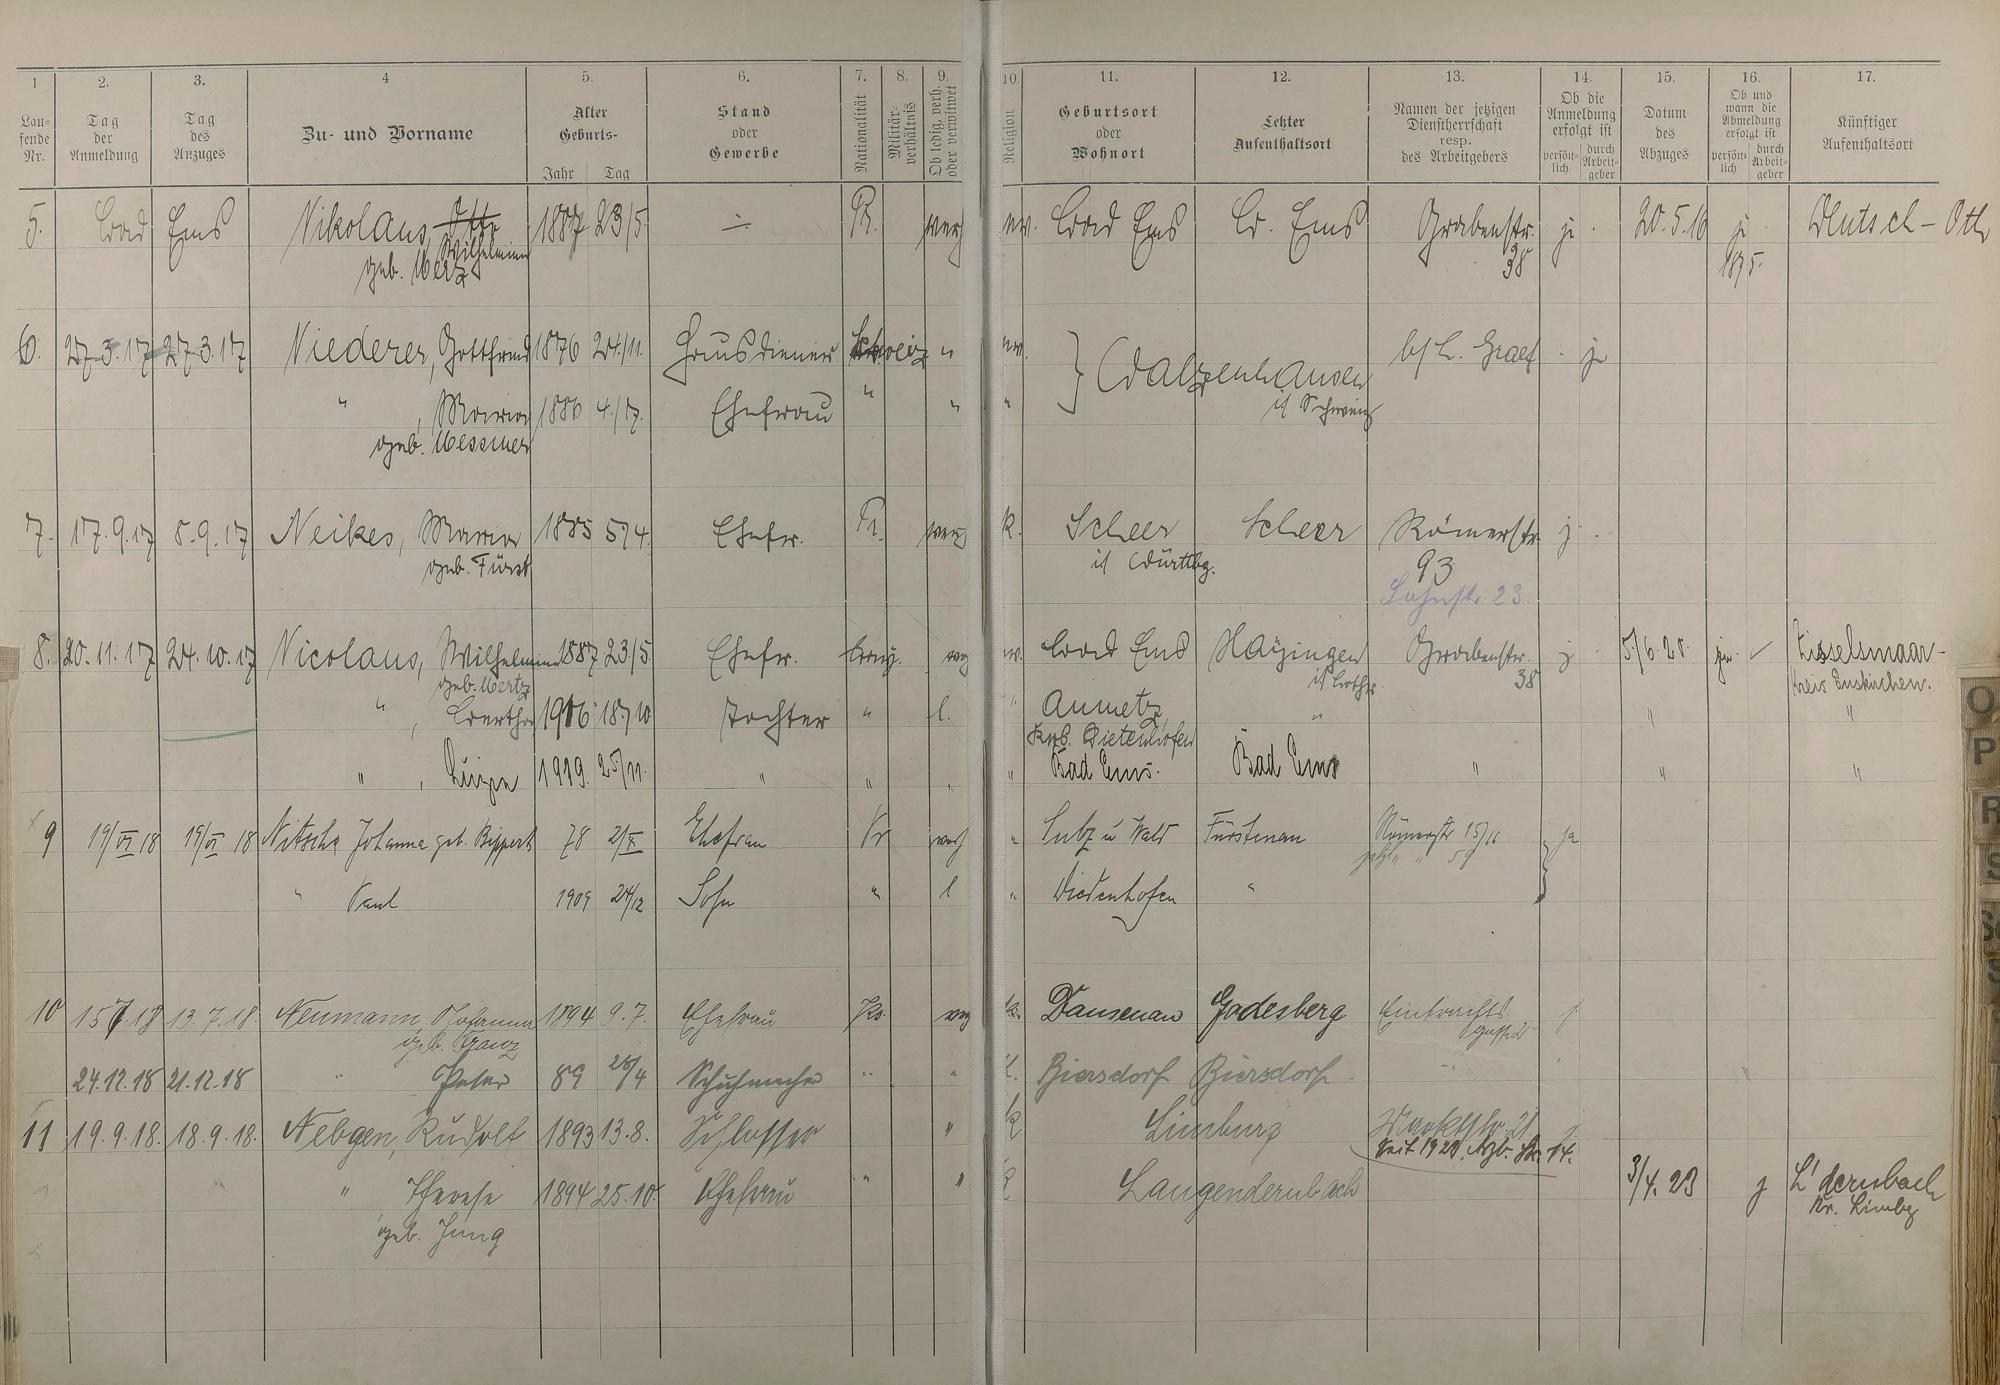 1 2. 3. 4 5. 6. 7. 8. 9. 10. 11. 12. 13. 14. 15. 16. 17.
Lau-fende Nr.
Tag der Anmeldung
Tag des Anzuges
Zu- und Vorname
Alter Geburts-
Jahr Tag
Stand oder Gewerbe
Nationalität
Militär-verhältnis
Ob ledig, verh. oder verwitwet
Religion
Geburtsort oder Wohnort
Letzter Aufenthaltsort
Namen der jetzigen Dienstherrschaft resp. des Arbeitgebers
Ob die Anmeldung erfolgt ist
persön-lich durch Arbeit-geber
Datum des Abzuges
Ob und wann die Abmeldung erfolgt ist
persön-lich durch Arbeit-geber
Künftiger Aufenthaltsort
5. Bad Ems Nikolaus, Otto 1887 23/5. Pr. verh Bad Ems B. Ems Grabenstr. j. 20.5.18 j. Deutsch-Oth
Wilhelmine
geb. Merz 38 1895.
6. 27.3.17 27.3.17 Niederer, Gottfried 1876 24/11. Hausdiener Schweiz " } Walzenhausen b/ H. Graef j
" , Maria 1886 4/17. Ehefrau " " " i/ Schweiz
geb. Messmer
7. 17.9.17 8.9.17 Neikes, Maria 1885 5/4. Ehefr. Pr. verh k. Scheer Scheer Römerstr. j.
geb. Fürst i/ Württbg. 93
Lahnstr. 23.
8. 20.11.17 24.10.17 Nicolaus, Wilhelmine 1887 23/5. Ehefr. Bad Ems Hayingen Grabenstr. j 5./6.20. Zisselsmaar-
geb. Mertz i/ Lothr. 38 Kreis Euskirchen.
" , Bertha 1916 18/10 Tochter " l. " Aumetz " " "
Krs. Dietenhofen
" , Luize 1919. 25/11. " " " Bad Ems. Bad Ems " " "
9 19/VI 18 19/VI 18 Nitsche Johanna geb. Bippert 78 2/X Ehefrau Pr verh " Sulz u Wald Fürstenau Römerstr 15/16 ja
jetzt " " 59
" Paul 1909 24/12 Sohn " l " Diedenhofen "
10 15.7.18 13.7.18. Neumann, Johanna 1894 9.7. Ehefrau Pr. k. Dausenau Godesberg Eintrachts-
geb. Franz gasse 2
24.12.18 21.12.18 " Peter 89 28/4 Schuhmacher " " Biersdorf Biersdorf
11 19.9.18. 18.9.18. Nebgen, Rudolf 1893 13.8. Schlosser " k Limburg Marktstr. 21
seit 1920. Arzb. Str. 14.
" Therese 1894 25.10. Ehefrau " " k Langendernbach 3/4.23 j L'dernbach
geb. Jung Kr. Limbg